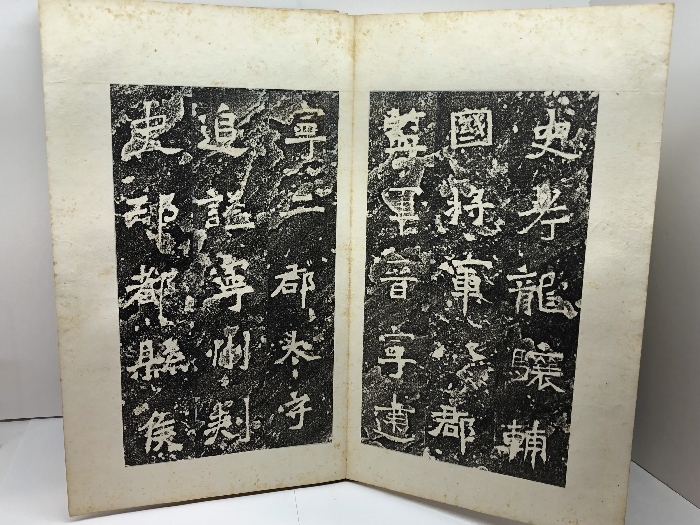 史考龍驤輔
國將軍八郡
監軍晉寧建
寧二郡太守
追謚寧州刺
史邛都縣侯